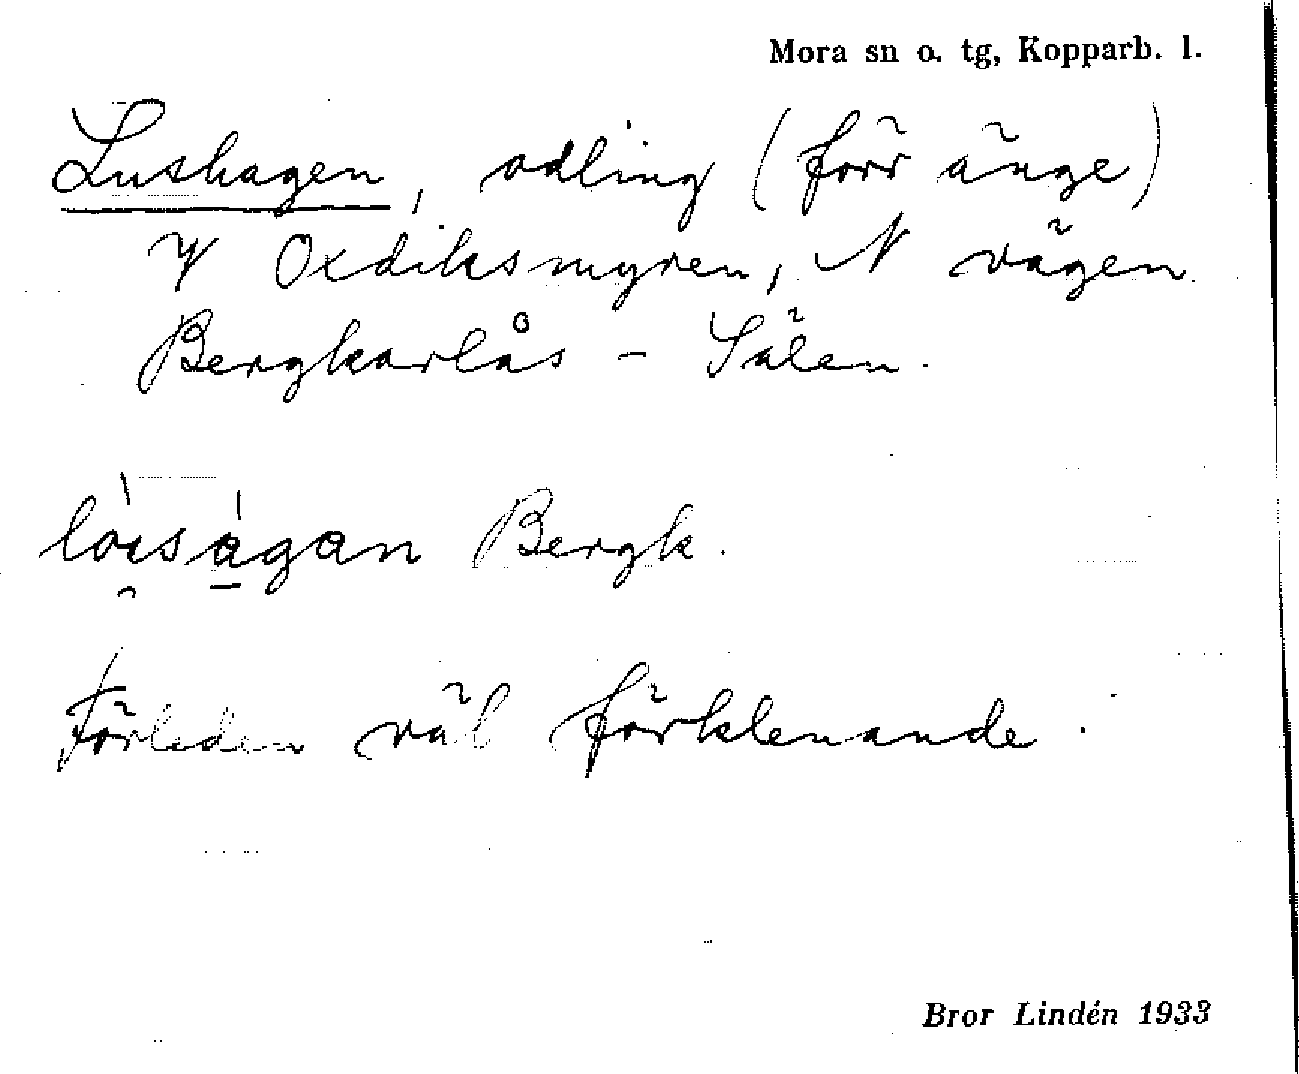 Mora sn o. tg, Kopparb. l.
Lushagen, odling (förr änge)
V Oxdiksmyren, N vägen
Bergkarlås – Sälen.
Bergk.
Förleden väl förklenande.
Bror Lindén 1933